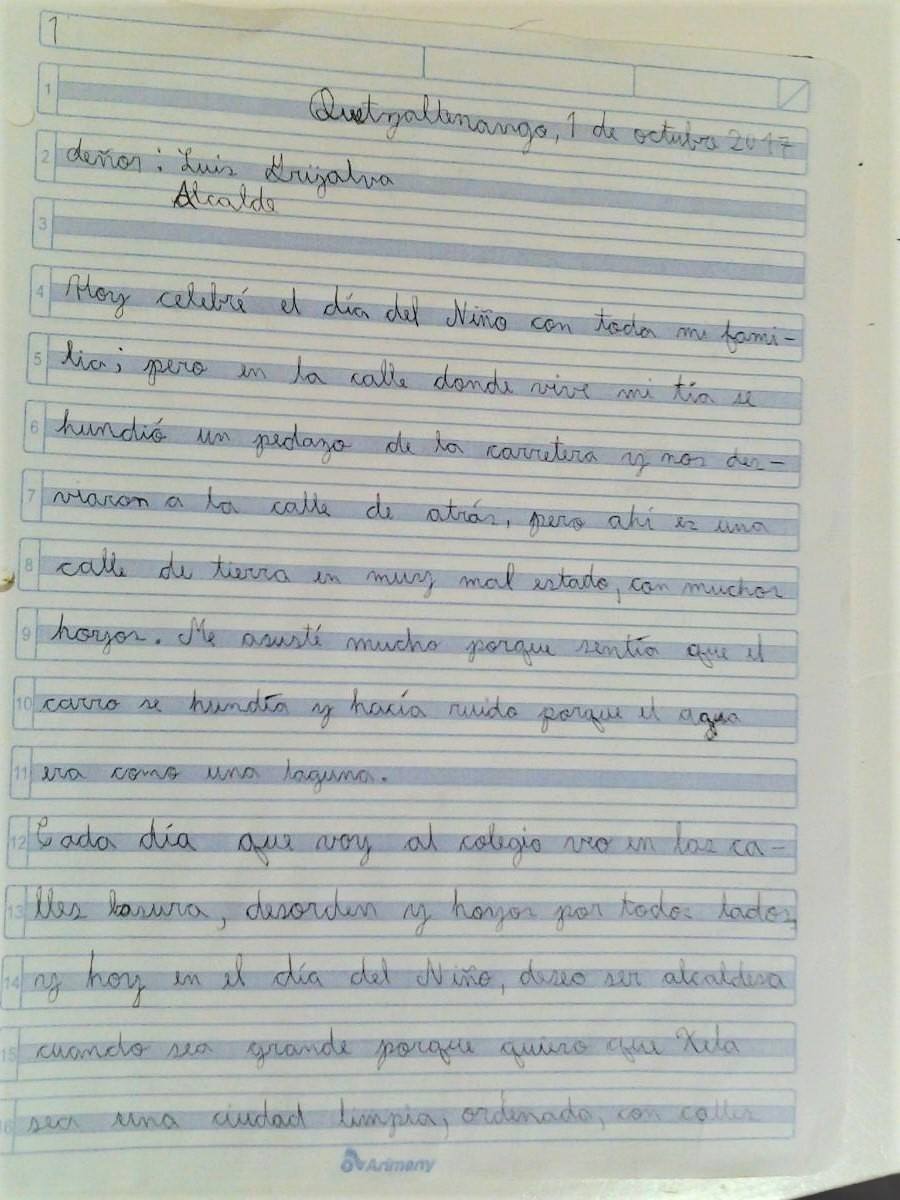 1
1
Quetzaltenango, 1 de octubre 2017
2
Señor: Luis Grijalva
Alcalde
3
4 Hoy celebré el día del Niño con toda mi fami-
5 lia; pero en la calle donde vive mi tía se
6 hundió un pedazo de la carretera y nos des-
7 viaron a la calle de atrás, pero ahí es una
8 calle de tierra en muy mal estado, con muchos
9 hoyos. Me asusté mucho porque sentía que el
10 carro se hundía y hacía ruido porque el agua
11 era como una laguna.
12 Cada día que voy al colegio veo en las ca-
13 lles basura, desorden y hoyos por todos lados,
14 y hoy en el día del Niño, deseo ser alcaldesa
15 cuando sea grande porque quiero que Xela
16 sea una ciudad limpia, ordenada, con calles
Arimany